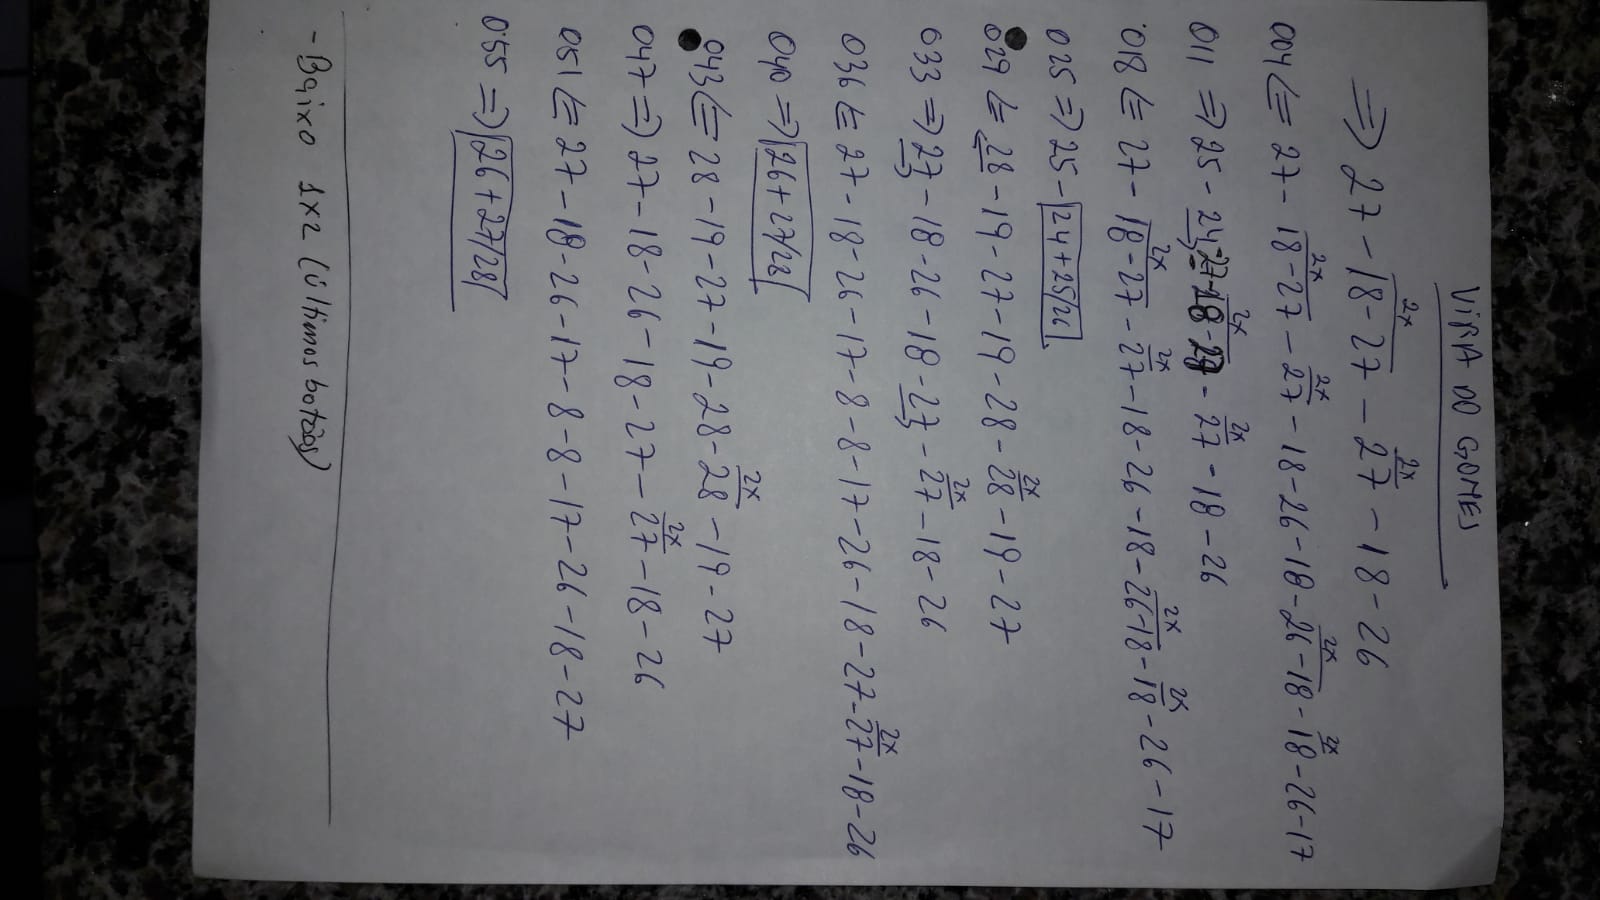 VIRA DO GOMES
2x 2x
⇒ 27 - 18-27 - 27 - 18 - 26
2x 2x 2x 2x
004 ⇐ 27 - 18-27 - 27 - 18 - 26 - 18 - 26-18 - 18 - 26 - 17
2x 2x
011 ⇒ 25 - 24 - 27 - 18-27 - 27 - 18 - 26
2x 2x 2x 2x
018 ⇐ 27 - 18-27 - 27 - 18 - 26 - 18 - 26-18 - 18 - 26 - 17
025 ⇒ 25 - 24+25/26
2x
029 ⇐ 28 - 19 - 27 - 19 - 28 - 28 - 19 - 27
2x
033 ⇒ 27 - 18 - 26 - 18 - 27 - 27 - 18 - 26
2x
036 ⇐ 27 - 18 - 26 - 17 - 8 - 8 - 17 - 26 - 18 - 27 - 27 - 18 - 26
040 ⇒ 26+27/28
2x
043 ⇐ 28 - 19 - 27 - 19 - 28 - 28 - 19 - 27
2x
047 ⇒ 27 - 18 - 26 - 18 - 27 - 27 - 18 - 26
051 ⇐ 27 - 18 - 26 - 17 - 8 - 8 - 17 - 26 - 18 - 27
055 ⇒ 26+27/28
- Baixo 1x2 (últimos botões)